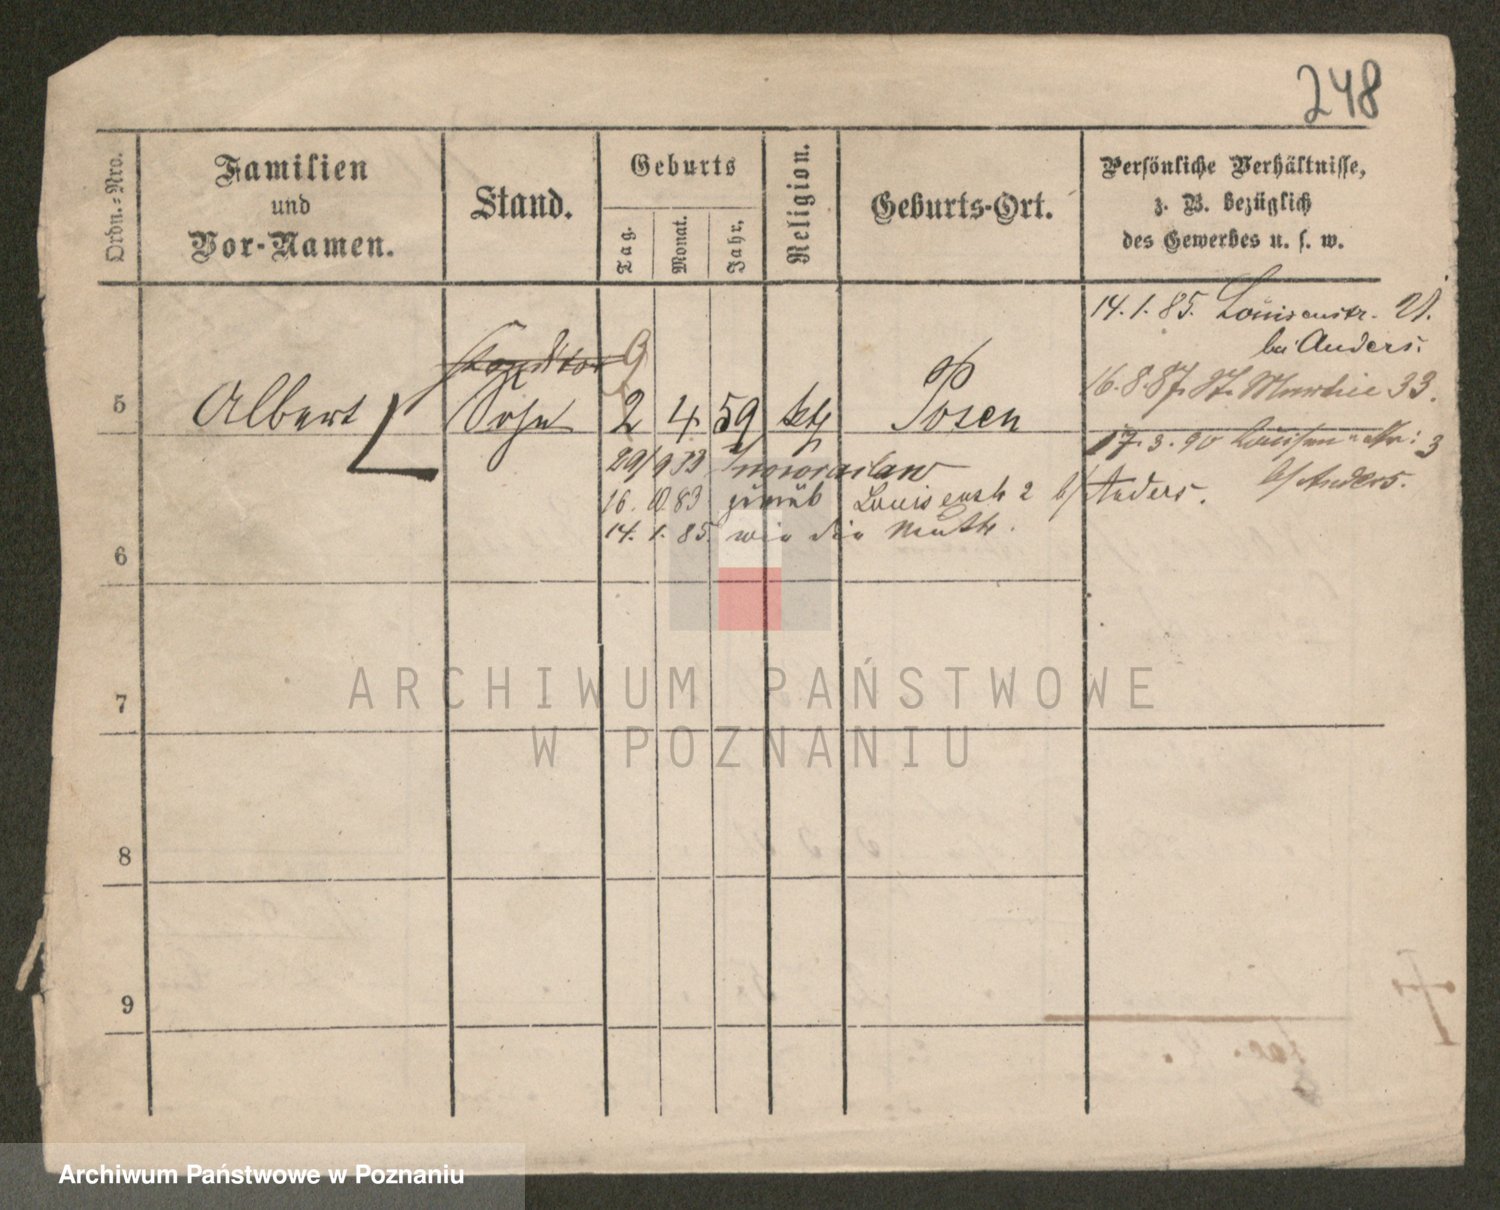 248
Ordn.-Nro.
Familien
und
Vor-Namen.
Stand.
Geburts
Tag.
Monat.
Jahr.
Religion.
Geburts-Ort.
Persönliche Verhältnisse,
z. B. bezüglich
des Gewerbes u. s. w.
14. 1. 85. Louisenstr. 21.
bei Anders.
16. 8. 87. St. Martin 33.
5 Albert Sohn 2 4 59 kth Posen
17. 3. 90 3
b/ Anders.
29/9 83 Inowraclaw
16. 10 83 zurück Louisenstr 2 b/ Anders.
14. 1. 85. wie die
6
7
8
9
ARCHIWUM PAŃSTWOWE
W POZNANIU
Archiwum Państwowe w Poznaniu